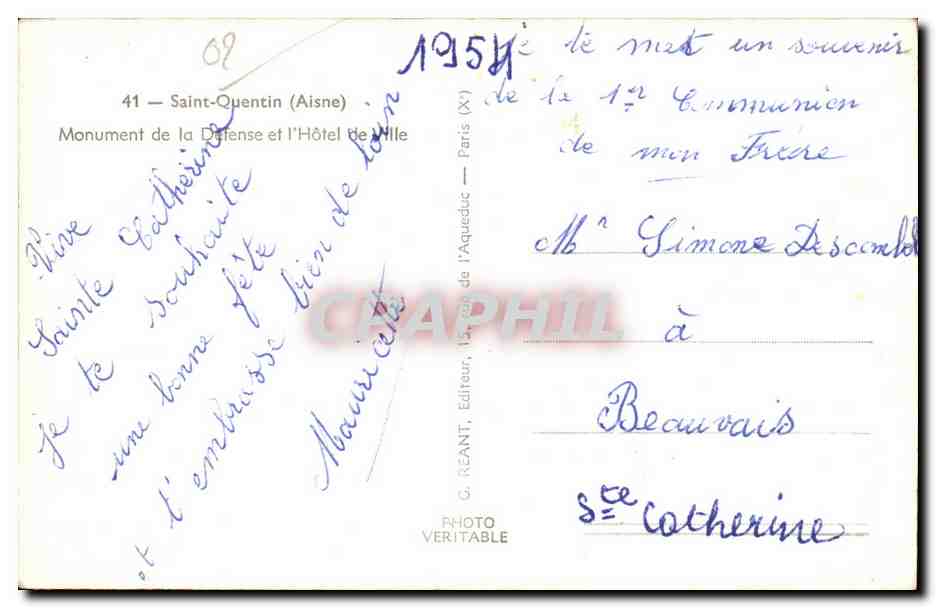 02
41 — Saint-Quentin (Aisne)
Monument de la Défense et l'Hôtel de Ville
Vive
Sainte Catherine
Je te souhaite
une bonne fête
et t'embrasse bien de loin
Mauricette
G. REANT, Editeur, 15, rue de l'Aqueduc — Paris (Xe)
PHOTO
VERITABLE
1954
je te met un souvenir
de la 1er Communion
de mon Frére
Simone
à
Beauvais
Ste Catherine
CPAPHIL